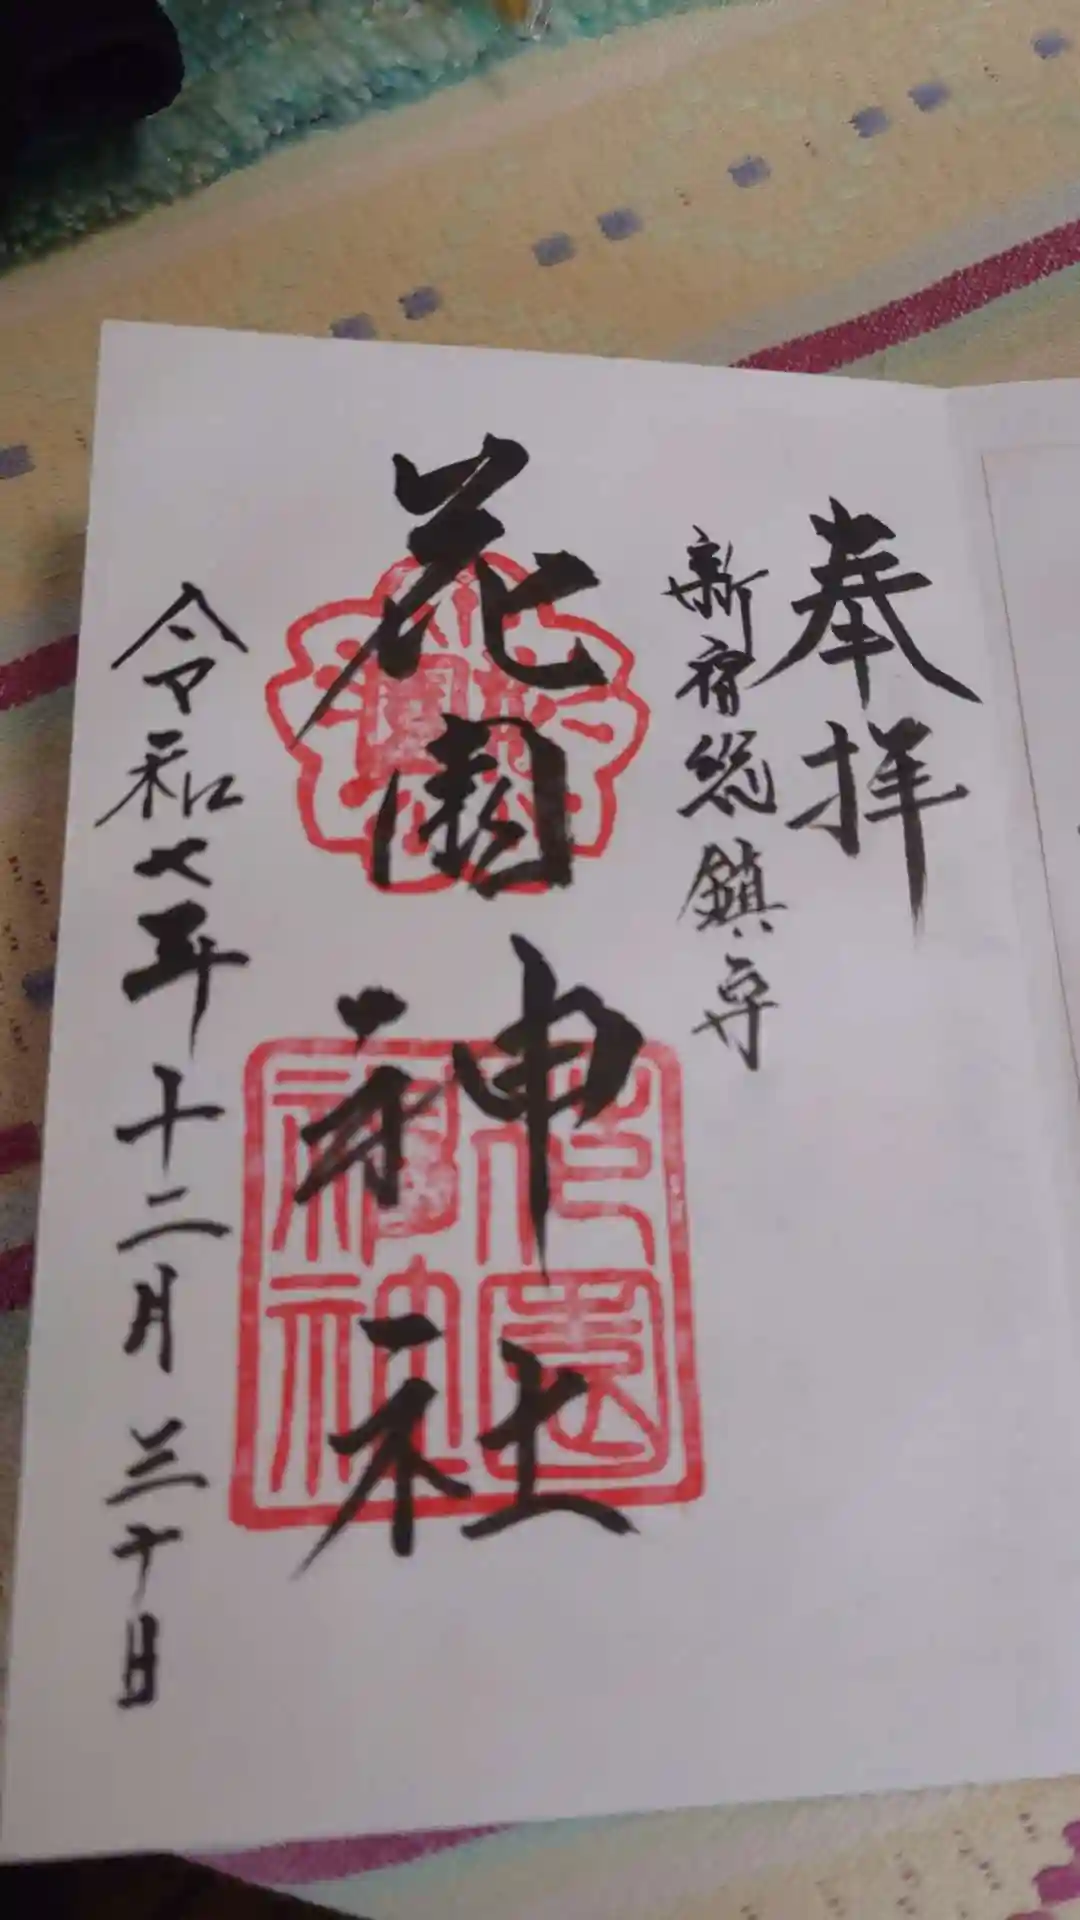 奉拝
新宿総鎮守
花園神社
令和七年十二月三十日
花園神社